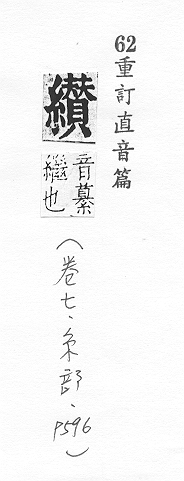 62重訂直音篇
纉
音纂
繼也
(卷七·糸部·P596)